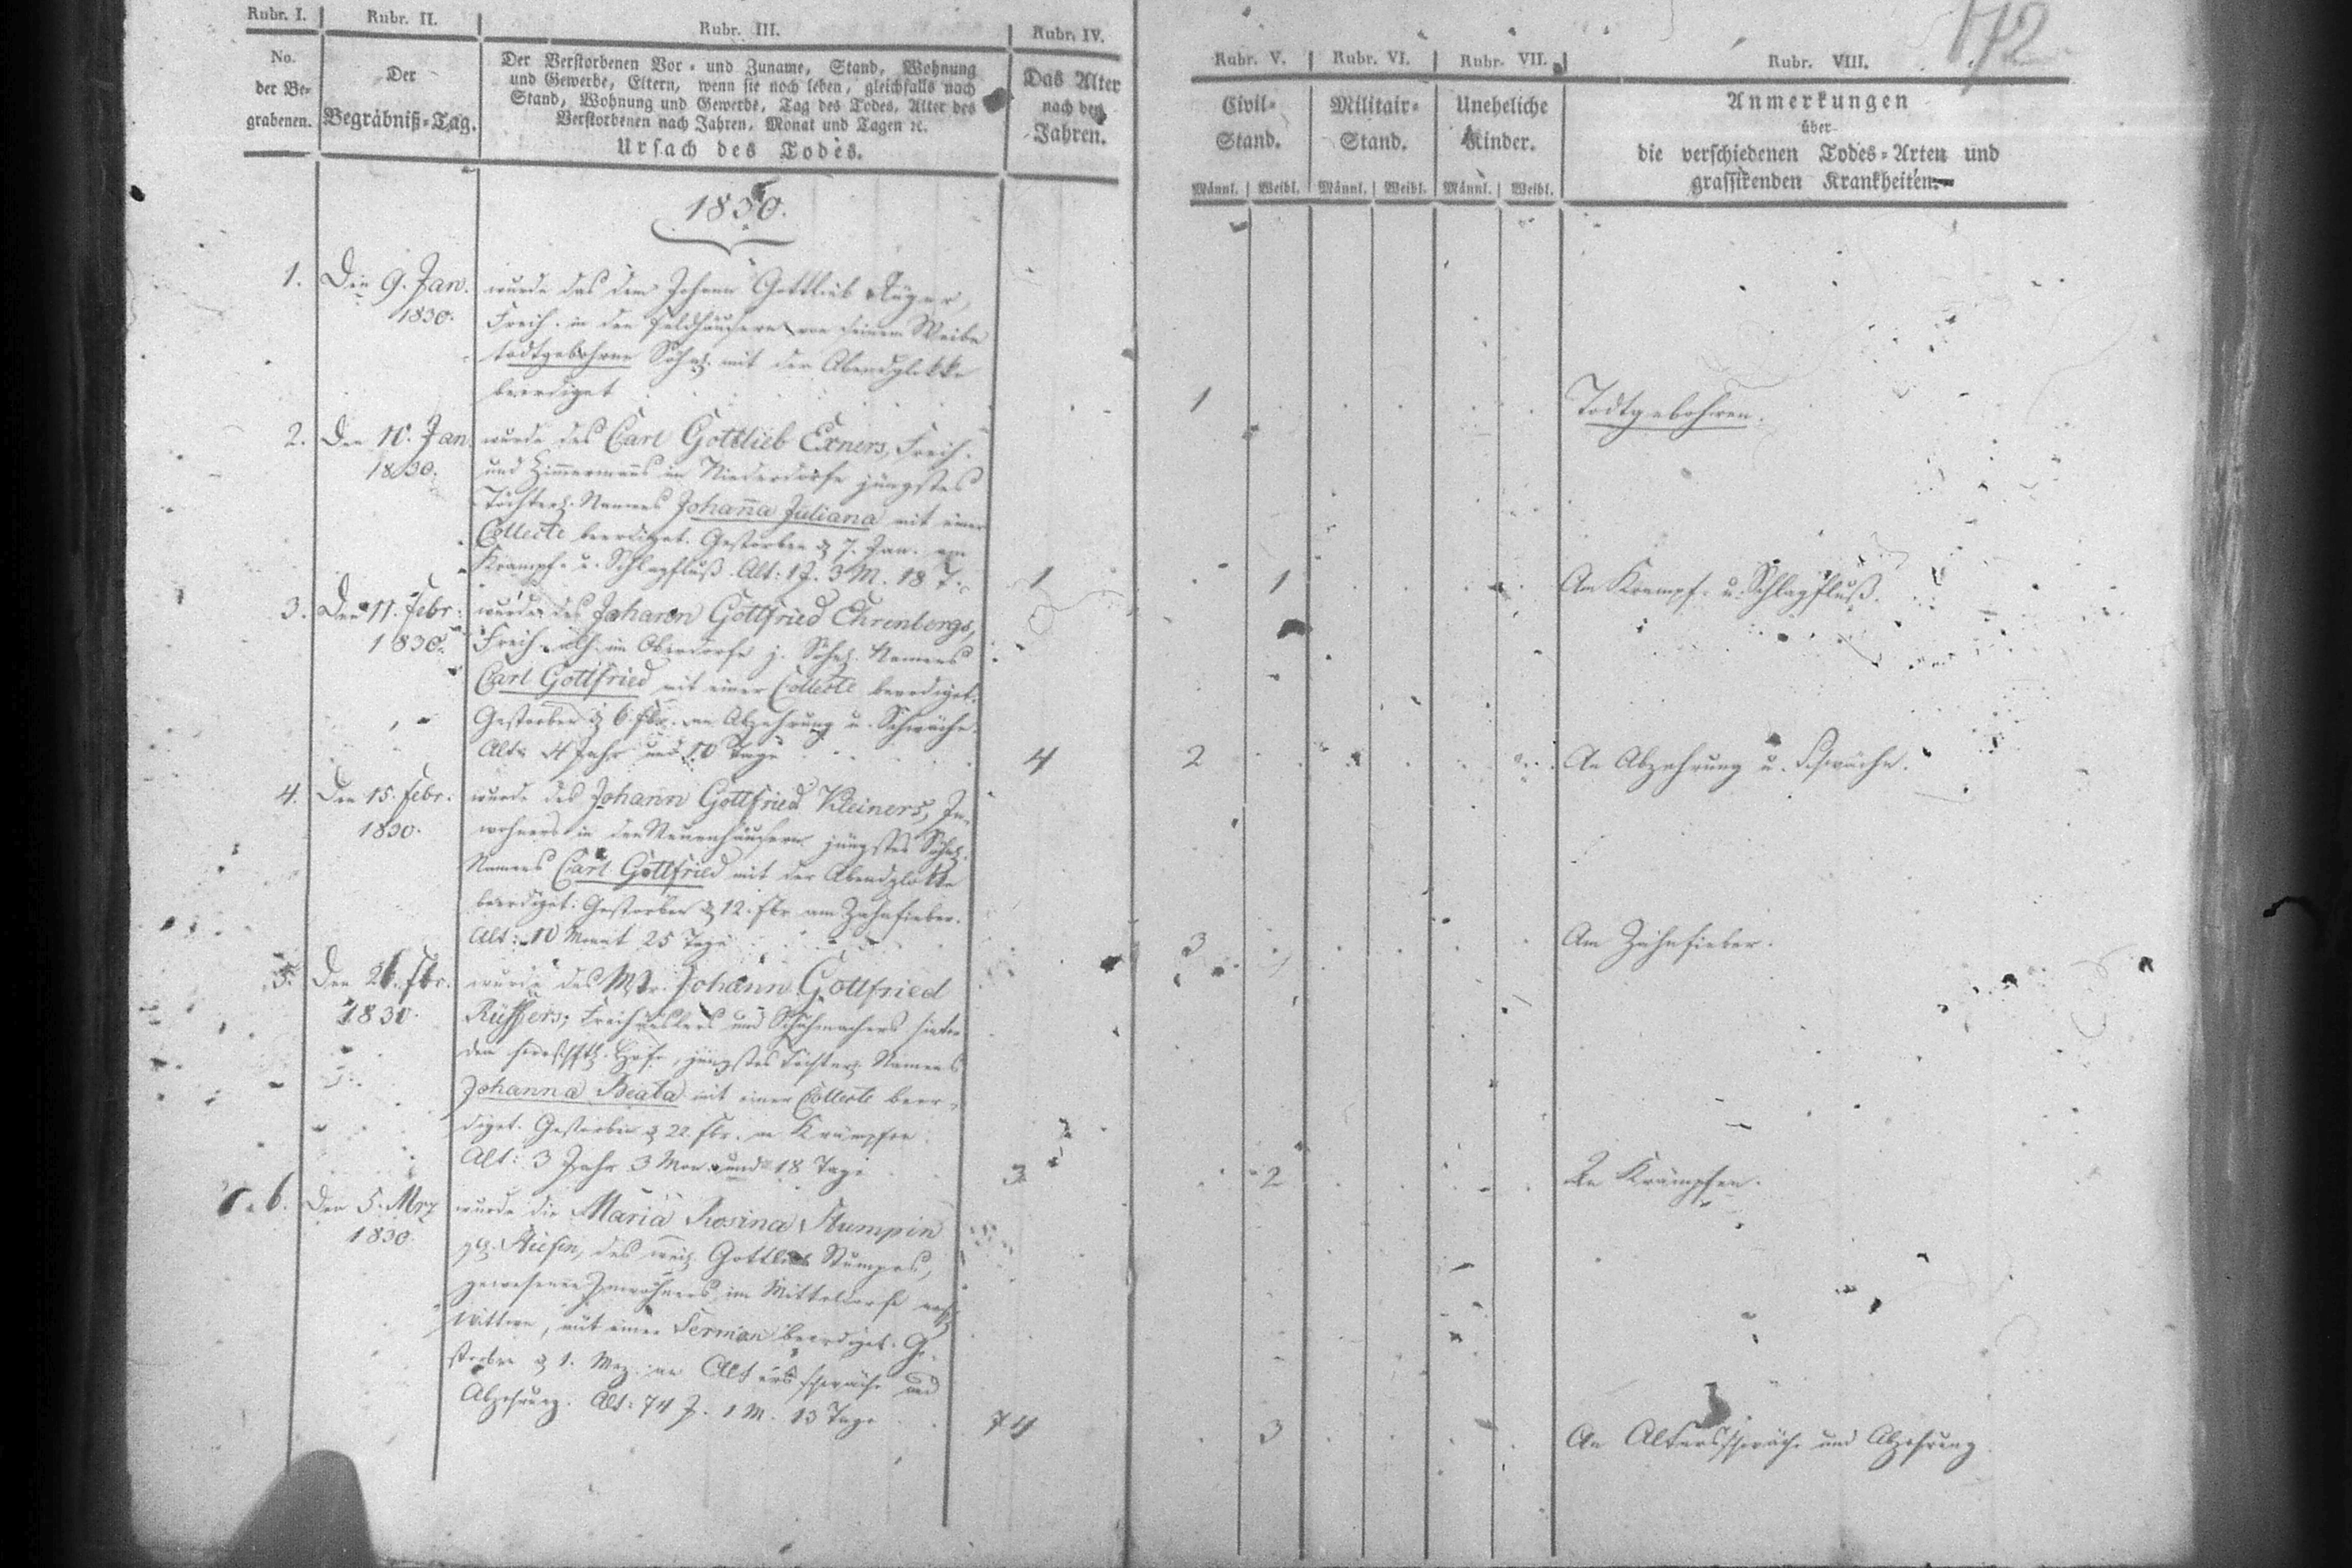 172
Rubr. I.
Rubr. II.
Rubr. III.
Rubr. IV.
Rubr. V.
Rubr. VI.
Rubr. VII.
Rubr. VIII.
No.
der Be-
grabenen.
Der
Begräbniß-Tag.
Der Verstorbenen Vor- und Zuname, Stand, Wohnung
und Gewerbe, Eltern, wenn sie noch leben, gleichfalls nach
Stand, Wohnung und Gewerbe, Tag des Todes, Alter des
Verstorbenen nach Jahren, Monat und Tagen ꝛc.
Ursach des Todes.
Das Alter
nach den
Jahren.
Civil-
Stand.
Militair-
Stand.
Uneheliche
Kinder.
Anmerkungen
über
die verschiedenen Todes-Arten und
grassirenden Krankheiten.
Männl. Weibl. Männl. Weibl. Männl. Weibl.
1830.
1. Den 9. Jan.
1830.
wurde das dem Johann Gottlieb
Freih. in den Feldhäusern von seinem Weibe
todtgebohrne Söhnl. mit der Abendglokke
beerdiget
1
Todtgebohren.
2. Den 10. Jan
1830.
wurde des Carl Gottlieb Exners, Freih.
und Zimmermanns in Niederdorfe jüngstes
Töchterl. Namens Johanna Juliana mit einer
Collecte beerdiget. Gestorben d. 7. Jan. am
Krampf- u. Schlagfluß. Alt: 1 J. 3 M. 18 T.
1
1
Am Krampf- u. Schlagfluß.
3. Den 11. Febr.
1830.
wurde des Johann Gottfried Ehrenbergs,
Freih. im Oberdorfe j. Söhnl. Namens
Carl Gottfried mit einer Collecte beerdiget.
Gestorben d. 6. Fbr. an Abzehrung u. Schwäche.
Alt: 4 Jahr und 10 Tage
4
2
An Abzehrung u. Schwäche.
4. Den 15. Febr.
1830.
wurde des Johann Gottfried Kleiners, In-
wohners in den Neuenhäusern jüngstes Söhnl.
Namens Carl Gottfried mit der Abendglokke
beerdiget. Gestorben d. 12. Fbr am Zahnfieber.
Alt: 10 Monat 25 Tage
3
Am Zahnfieber.
5. Den 26. Fbr.
1830.
wurde des Mstr. Johann Gottfried
Rüffers, Freihäuslers und Schuhmachers hinter
den herrschftl. Hofe, jüngstes Töchterl. Namens
Johanna Beata mit einer Collecte beer-
diget. Gestorben d. 22. Fbr. an Krämpfen.
Alt: 3 Jahr 3 Mon. und 18 Tage
3
2
An Krämpfen.
6. Den 5. Mrz
1830.
wurde die Maria Rosina Stumpin
des weil. Gottlieb Stumpes,
gewesenen Inwohners im Mitteldorfe
Wittwe, mit einer Sermon beerdiget. Ge-
storben d. 1. Mrz. an Altersschwäche und
Abzehrung. Alt: 74 J. 1 M. 13 Tage
74
3
An Altersschwäche und Abzehrung.